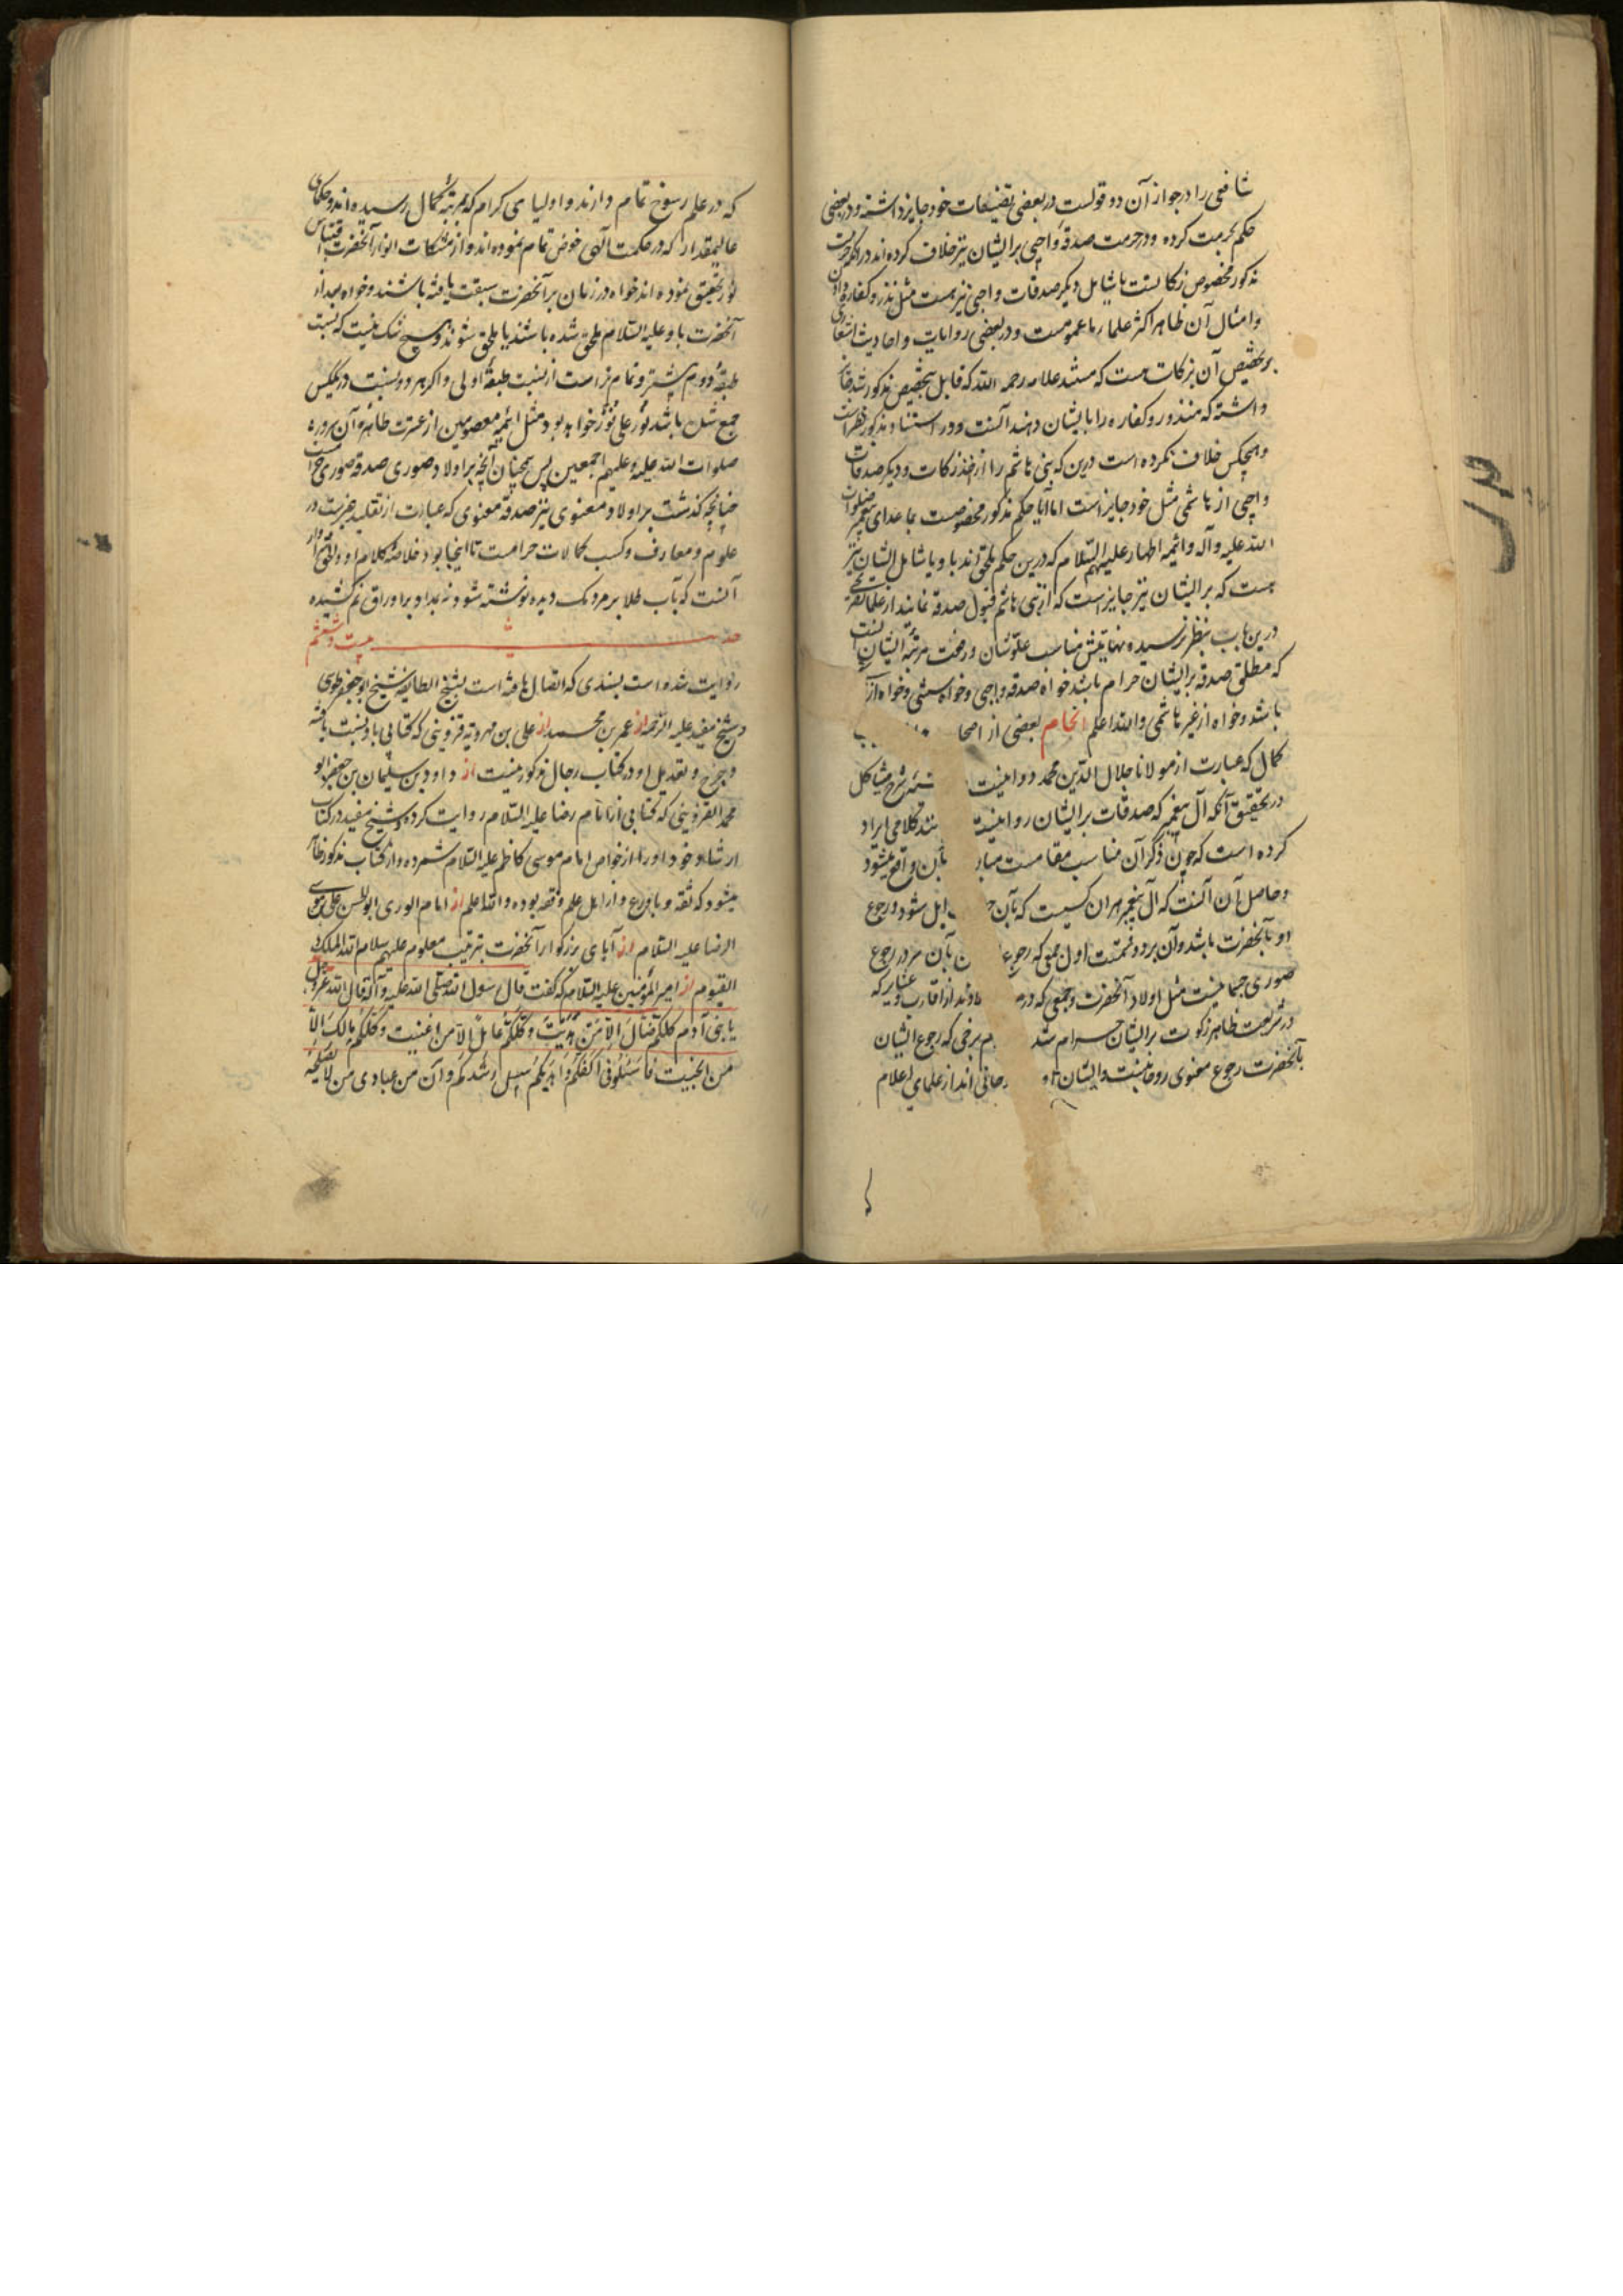 شافعی را در جواز آن دو قولست در بعضی تصنیفات خود جایز داشته و در بعضی
حکم بحرمت کرده و در حرمت صدقهٔ واجبی بر ایشان نیز خلاف کرده‌اند در آنکه حرمت
مذکور مخصوص زکاتست یا شامل دیگر صدقات واجبی نیز هست مثل نذر و کفاره دادن
و امثال آن ظاهر اکثر علماء ما عمومست و در بعضی روایات و احادیث اشعاری
بر تخصیص آن بزکات هست که مستند علامه رحمه الله که قایل بتخصیص مذکور شد
داشته که منذور و کفاره را بایشان دهند آنست و در استناد مذکور نظر است
و هیچکس خلاف نکرده است درین که بنی هاشم را اخذ زکات و دیگر صدقات
واجبی از هاشمی مثل خود جایز است اما آیا حکم مذکور مخصوصست بما عدای پیغمبر صلوات
الله علیه و آله و ائمه اطهار علیهم السلام که درین حکم ملحق‌اند باو یا شامل ایشان نیز
هست که بر ایشان نیز جایز است که از بنی هاشم قبول صدقه نمایند از علما تصریحی
درین باب بنظر نرسیده نهایتش مناسب علو شان و رفعت مرتبهٔ ایشان آنست
که مطلق صدقه بر ایشان حرام باشد خواه صدقه واجبی و خواه سنتی و خواه از
باشد و خواه از غیر هاشمی والله اعلم انجام بعضی از اصحا
کمال که عبارت از مولانا جلال الدین محمد دوانیست شرح هیاکل
در تحقیق آنکه آل پیغمبر که صدقات بر ایشان روا نیست کلامی ایراد
کرده است که چون ذکر آن مناسب مقامست بآن واقع میشود
و حاصل آن آنست که آل پیغمبر هر آن کسیست که بآن شود و رجوع
او بآنحضرت باشد و آن بر دو قسمست اول جمعی که رجوع بآن سرور رجوع
صوری جسمانیست مثل اولاد آنحضرت و جمعی که از اقارب و غیر که
در شریعت ظاهر زکوت بر ایشان حرام شد برخی که رجوع ایشان
بآنحضرت رجوع معنوی روحانیست و ایشان روحانی‌اند از علمای اعلام
که در علم رسوخ تمام دارند و اولیای کرام که بمرتبهٔ کمال رسیده‌اند و حکمای
عالیمقدار که در حکمت آلهی خوض تمام نموده‌اند و از مشکات انوار آنحضرت اقتباس
نور تحقیق نموده‌اند خواه در زمان بر آنحضرت سبقت یافته باشند و خواه بعد از
آنحضرت باو علیه السلام ملحق شده باشند یا ملحق شوند و هیچ شک نیست که نسبت
طبقهٔ دویم بیشتر و تمام‌تر است از نسبت طبقهٔ اولی و اگر هر دو نسبت در یک کس
جمع شده باشد نور علی نور خواهد بود مثل ائمه معصومین از عترت طاهره آن سرور
صلوات الله علیه و علیهم اجمعین پس همچنان آنچه بر اولاد صوری صدقه صوری حرامست
چنانچه گذشت بر اولاد معنوی نیز صدقه معنوی که عبارت از تقلید غیرست در
علوم و معارف و کسب کمالات حرامست تا اینجا بود خلاصهٔ کلام او والحق سزاوار
آنست که بآب طلا بر مردمک دیده نوشته شود نه بمداد بر اوراق غم کشیده
حدیث بیست و ششم
روایت شده است بسندی که اتصال یافته است بشیخ الطایفه شیخ ابو جعفر طوسی
از شیخ مفید علیه الرحمه از عمر بن محمد از علی بن مهرویه قزوینی که کتابی باو نسبت یافته
و جرح و تعدیل او در کتاب رجال مذکور نیست از داود بن سلیمان بن جعفر ابو
محمد القزوینی که کتابی از امام رضا علیه السلام روایت کرده و شیخ مفید در کتاب
ارشاد خود او را از خواص امام موسی کاظم علیه السلام شمرده و از کتاب مذکور ظاهر
میشود که ثقه و با ورع و از اهل علم و فقه بوده والله اعلم از امام الوری ابو الحسن علی بن موسی
الرضا علیه السلام از آبای بزرگوار آنحضرت بترتیب معلوم علیهم سلام الله الملک
القیوم از امیر المؤمنین علیه السلام که گفت قال رسول الله صلی الله علیه و آله قال الله عز و جل
یا بنی آدم کلکم ضال الا من هدیت و کلکم عایل الا من اغنیت و کلکم هالک الا
من انجیت فاسئلونی اکفکم و اهدیکم سبیل رشدکم و ان من عبادی من لا یصلحه